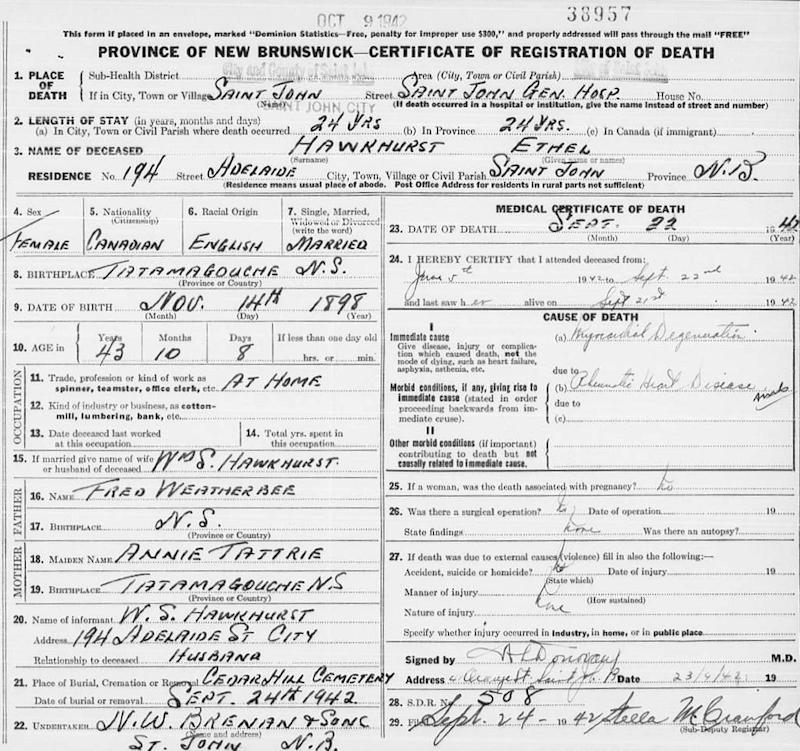 OCT 9 1942
38957
This form if placed in an envelope, marked "Dominion Statistics—Free, penalty for improper use $300," and properly addressed will pass through the mail "FREE"
PROVINCE OF NEW BRUNSWICK—CERTIFICATE OF REGISTRATION OF DEATH
1. PLACE OF DEATH
Sub-Health District Area (City, Town or Civil Parish)
If in City, Town or Village SAINT JOHN Street SAINT JOHN GEN. HOSP. House No.
(Name) SAINT JOHN CITY (If death occurred in a hospital or institution, give the name instead of street and number)
2. LENGTH OF STAY (in years, months and days)
(a) In City, Town or Civil Parish where death occurred 24 YRS (b) In Province 24 YRS. (c) In Canada (if immigrant)
3. NAME OF DECEASED HAWKHURST ETHEL
(Surname) (Given name or names)
RESIDENCE No. 194 Street ADELAIDE City, Town, Village or Civil Parish SAINT JOHN Province N.B.
(Residence means usual place of abode. Post Office Address for residents in rural parts not sufficient)
4. Sex FEMALE
5. Nationality (Citizenship) CANADIAN
6. Racial Origin ENGLISH
7. Single, Married, Widowed or Divorced (write the word) MARRIED
8. BIRTHPLACE TATAMAGOUCHE N.S.
(Province or Country)
9. DATE OF BIRTH NOV. 14th 1898
(Month) (Day) (Year)
10. AGE in Years 43 Months 10 Days 8 If less than one day old hrs. or min.
OCCUPATION
11. Trade, profession or kind of work as spinner, teamster, office clerk, etc. AT HOME
12. Kind of industry or business, as cotton-mill, lumbering, bank, etc.
13. Date deceased last worked at this occupation
14. Total yrs. spent in this occupation
15. If married give name of wife or husband of deceased WM S. HAWKHURST.
FATHER
16. NAME FRED WEATHERBEE
17. BIRTHPLACE N.S.
(Province or Country)
MOTHER
18. MAIDEN NAME ANNIE TATTRIE
19. BIRTHPLACE TATAMAGOUCHE N.S
(Province or Country)
20. Name of informant W.S. HAWKHURST
Address 194 ADELAIDE ST CITY
Relationship to deceased HUSBAND
21. Place of Burial, Cremation or Removal CEDAR HILL CEMETERY
Date of burial or removal SEPT. 24TH 1942
22. UNDERTAKER N.W. BRENAN & SONS
(Name and address)
ST. JOHN N.B.
MEDICAL CERTIFICATE OF DEATH
23. DATE OF DEATH SEPT. 22 1942
(Month) (Day) (Year)
24. I HEREBY CERTIFY that I attended deceased from:
June 5th 1942 to Sept. 22nd 1942
and last saw her alive on Sept 21st 1942
CAUSE OF DEATH
I
Immediate cause
Give disease, injury or complication which caused death, not the mode of dying, such as heart failure, asphyxia, asthenia, etc.
(a) Myocardial Degeneration
due to
Morbid conditions, if any, giving rise to immediate cause (stated in order proceeding backwards from immediate cause).
(b) Rheumatic Heart Disease
due to
(c)
II
Other morbid conditions (if important) contributing to death but not causally related to immediate cause.
25. If a woman, was the death associated with pregnancy? No
26. Was there a surgical operation? No Date of operation 19
State findings None Was there an autopsy?
27. If death was due to external causes (violence) fill in also the following:—
Accident, suicide or homicide? No Date of injury 19
(State which)
Manner of injury
(How sustained)
Nature of injury None
Specify whether injury occurred in industry, in home, or in public place
Signed by Donovan M.D.
Address Saint J. Date 23/9/42
28. S.D.R. No. 508
29. Filed Sept. 24 - 1942 Stella M Crawford
(Sub-Deputy Registrar)